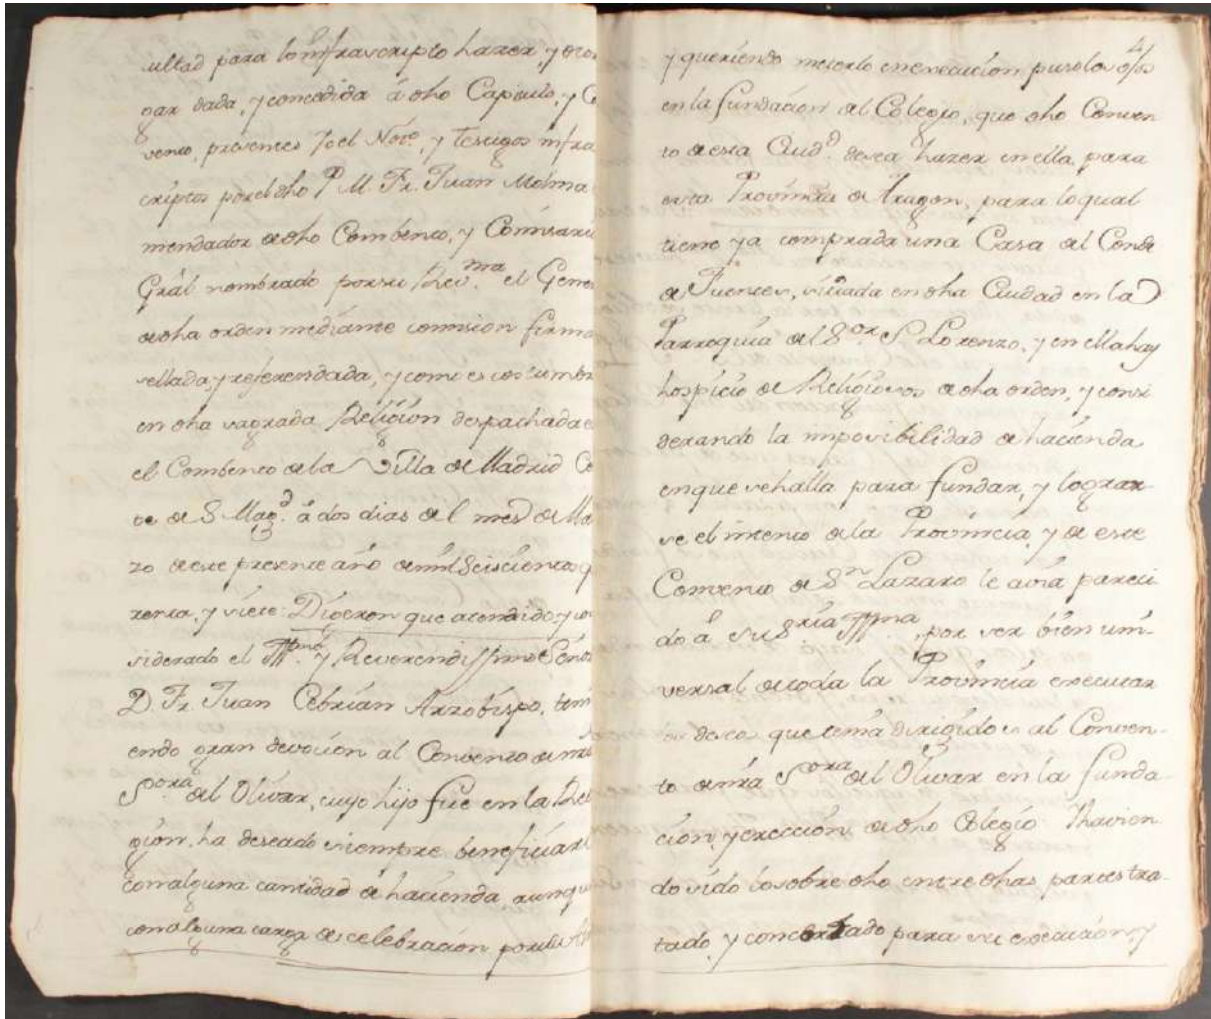 ultad para lo infrascripto hazer, y otor
gar dada, y concedida á dho Capitulo, y Co
vento, presentes Yo el Notº, y Testigos infra
criptos por el dho P M Fr. Juan Molina
mendador de dho Combento, y Comisario
Grál nombrado por su Revma el Gene
de dha orden mediante comision firma
sellada, y referendada, y como es costumbre
en dha sagrada Religion despachada e
el Combento de la Villa de Madrid Co
te de S Magd. á dos dias del mes de Ma
zo de este presente año de mil Seiscientos q
renta, y siete: Digeron que atendido, y con
siderado el Illmo. y Reverendissimo Señor
D. Fr. Juan Cebrián Arzobispo, teni
endo gran devocion al Convento de nrã
Sora del Olivar, cuyo hijo fue en la Rel
gion, ha deseado siempre beneficiarl
con alguna cantidad de hacienda, aunqu
con alguna carga de celebracion por su
4
y queriendo meterlo en execucion puso los ojos
en la fundacion del Colegio, que dho Conven
to de esta Ciudd. desea hazer en ella, para
esta Provincia de Aragon, para lo qual
tiene ya comprada una Casa del Conde
de Fuentes, sitiada en dha Ciudad en la
Parroquia del Sor. S. Lorenzo, y en ella hay
hospicio de Religiosos de dha orden, y consi
derando la imposibilidad de hacienda
en que se halla para fundar, y lograr
se el intento de la Provincia, y de este
Convento de Sn Lazaro le avia pareci
do á su Sria Illma, por ser bien uni
versal de toda la Provincia executar
los deseos que tenia dirigidos al Conven-
to de nrã Sora del Olivar en la funda
cion y ereccion de dho Colegio Ihavien
do sido lo sobre dho entre dhas partes tra-
tado, y concertado para su execucion, y